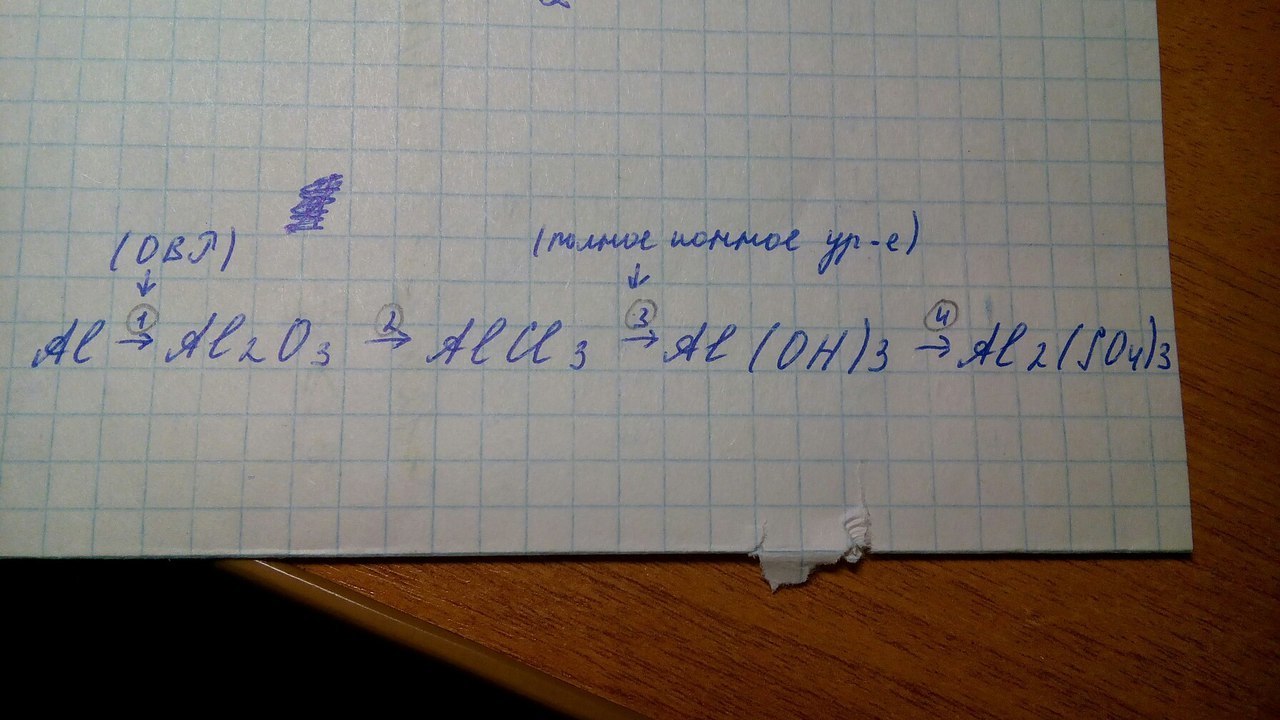 (ОВР) (полное ионное ур-е)
↓ ↓
1 2 3 4
Al → Al2O3 → AlCl3 → Al(OH)3 → Al2(SO4)3